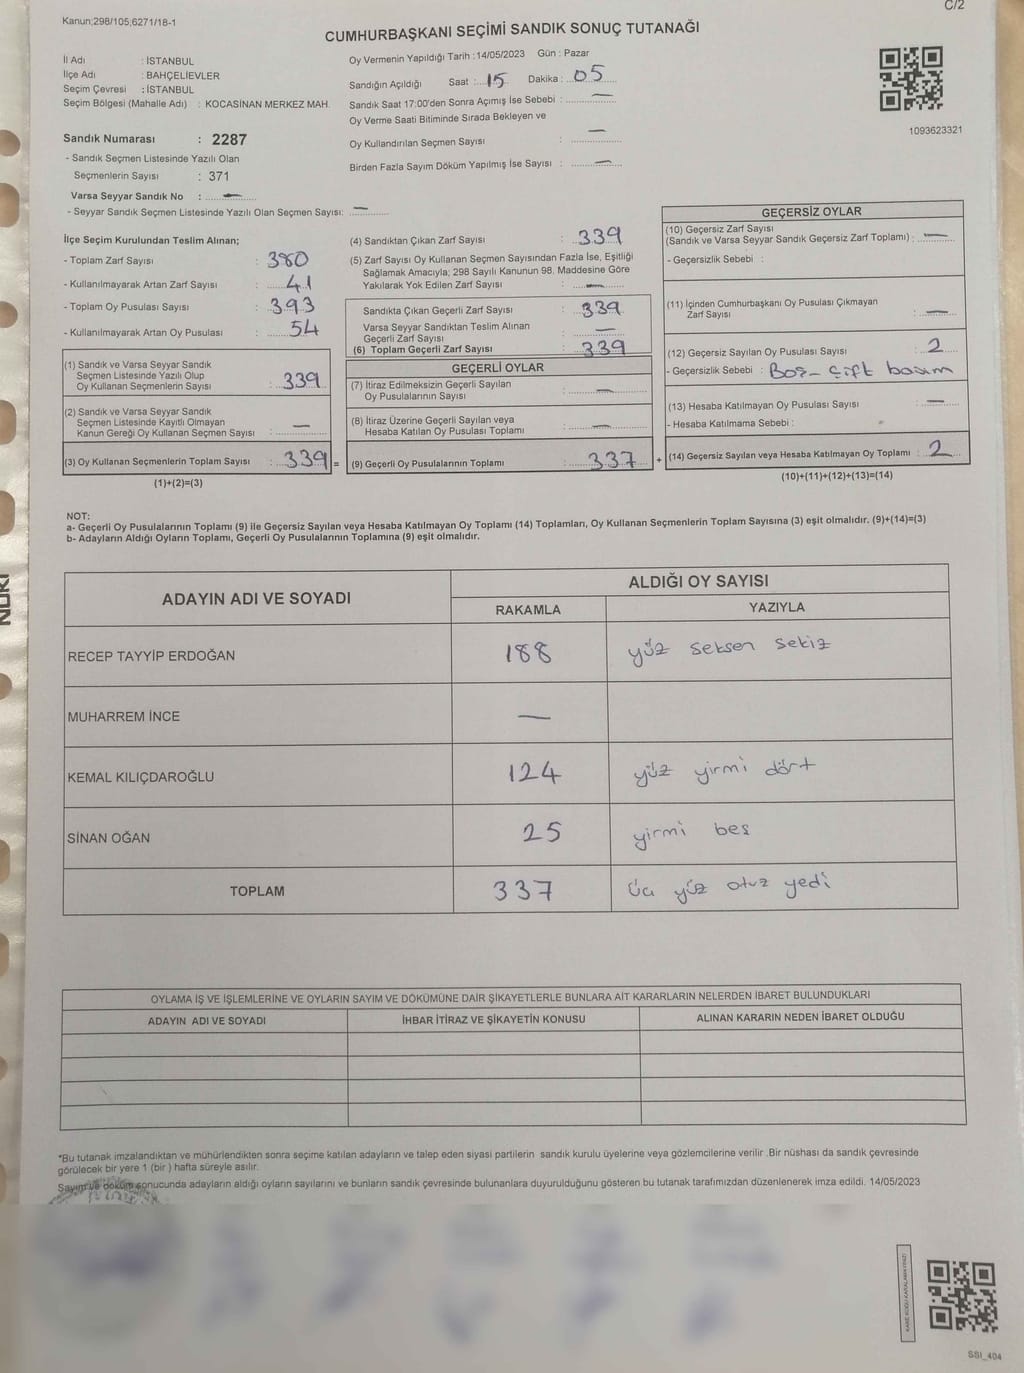 C/2
Kanun;298/105;6271/18-1
CUMHURBAŞKANI SEÇİMİ SANDIK SONUÇ TUTANAĞI
İl Adı : İSTANBUL
İlçe Adı : BAHÇELİEVLER
Seçim Çevresi : İSTANBUL
Seçim Bölgesi (Mahalle Adı) : KOCASİNAN MERKEZ MAH.
Sandık Numarası : 2287
- Sandık Seçmen Listesinde Yazılı Olan
Seçmenlerin Sayısı : 371
Varsa Seyyar Sandık No : —
- Seyyar Sandık Seçmen Listesinde Yazılı Olan Seçmen Sayısı: —
Oy Vermenin Yapıldığı Tarih : 14/05/2023 Gün : Pazar
Sandığın Açıldığı Saat : 15 Dakika : 05
Sandık Saat 17:00'den Sonra Açımış İse Sebebi : —
Oy Verme Saati Bitiminde Sırada Bekleyen ve
Oy Kullandırılan Seçmen Sayısı : —
Birden Fazla Sayım Döküm Yapılmış İse Sayısı : —
1093623321
İlçe Seçim Kurulundan Teslim Alınan;
- Toplam Zarf Sayısı : 380
- Kullanılmayarak Artan Zarf Sayısı : 41
- Toplam Oy Pusulası Sayısı : 393
- Kullanılmayarak Artan Oy Pusulası : 54
(1) Sandık ve Varsa Seyyar Sandık
Seçmen Listesinde Yazılı Olup
Oy Kullanan Seçmenlerin Sayısı : 339
(2) Sandık ve Varsa Seyyar Sandık
Seçmen Listesinde Kayıtlı Olmayan
Kanun Gereği Oy Kullanan Seçmen Sayısı : —
(3) Oy Kullanan Seçmenlerin Toplam Sayısı : 339 =
(1)+(2)=(3)
(4) Sandıktan Çıkan Zarf Sayısı : 339
(5) Zarf Sayısı Oy Kullanan Seçmen Sayısından Fazla İse, Eşitliği
Sağlamak Amacıyla; 298 Sayılı Kanunun 98. Maddesine Göre
Yakılarak Yok Edilen Zarf Sayısı : —
Sandıkta Çıkan Geçerli Zarf Sayısı : 339
Varsa Seyyar Sandıktan Teslim Alınan
Geçerli Zarf Sayısı : —
(6) Toplam Geçerli Zarf Sayısı : 339
GEÇERLİ OYLAR
(7) İtiraz Edilmeksizin Geçerli Sayılan
Oy Pusulalarının Sayısı : —
(8) İtiraz Üzerine Geçerli Sayılan veya
Hesaba Katılan Oy Pusulası Toplamı : —
(9) Geçerli Oy Pusulalarının Toplamı : 337 +
GEÇERSİZ OYLAR
(10) Geçersiz Zarf Sayısı
(Sandık ve Varsa Seyyar Sandık Geçersiz Zarf Toplamı) : —
- Geçersizlik Sebebi :
(11) İçinden Cumhurbaşkanı Oy Pusulası Çıkmayan
Zarf Sayısı : —
(12) Geçersiz Sayılan Oy Pusulası Sayısı : 2
- Geçersizlik Sebebi : Boş - Çift basım
(13) Hesaba Katılmayan Oy Pusulası Sayısı : —
- Hesaba Katılmama Sebebi :
(14) Geçersiz Sayılan veya Hesaba Katılmayan Oy Toplamı : 2
(10)+(11)+(12)+(13)=(14)
NOT:
a- Geçerli Oy Pusulalarının Toplamı (9) ile Geçersiz Sayılan veya Hesaba Katılmayan Oy Toplamı (14) Toplamları, Oy Kullanan Seçmenlerin Toplam Sayısına (3) eşit olmalıdır. (9)+(14)=(3)
b- Adayların Aldığı Oyların Toplamı, Geçerli Oy Pusulalarının Toplamına (9) eşit olmalıdır.
ADAYIN ADI VE SOYADI ALDIĞI OY SAYISI
RAKAMLA YAZIYLA
RECEP TAYYİP ERDOĞAN 188 yüz seksen sekiz
MUHARREM İNCE —
KEMAL KILIÇDAROĞLU 124 yüz yirmi dört
SİNAN OĞAN 25 yirmi beş
TOPLAM 337 üç yüz otuz yedi
OYLAMA İŞ VE İŞLEMLERİNE VE OYLARIN SAYIM VE DÖKÜMÜNE DAİR ŞİKAYETLERLE BUNLARA AİT KARARLARIN NELERDEN İBARET BULUNDUKLARI
ADAYIN ADI VE SOYADI İHBAR İTİRAZ VE ŞİKAYETİN KONUSU ALINAN KARARIN NEDEN İBARET OLDUĞU
*Bu tutanak imzalandıktan ve mühürlendikten sonra seçime katılan adayların ve talep eden siyasi partilerin sandık kurulu üyelerine veya gözlemcilerine verilir .Bir nüshası da sandık çevresinde
görülecek bir yere 1 (bir ) hafta süreyle asılır.
Sayım ve döküm sonucunda adayların aldığı oyların sayılarını ve bunların sandık çevresinde bulunanlara duyurulduğunu gösteren bu tutanak tarafımızdan düzenlenerek imza edildi. 14/05/2023
SSI_404